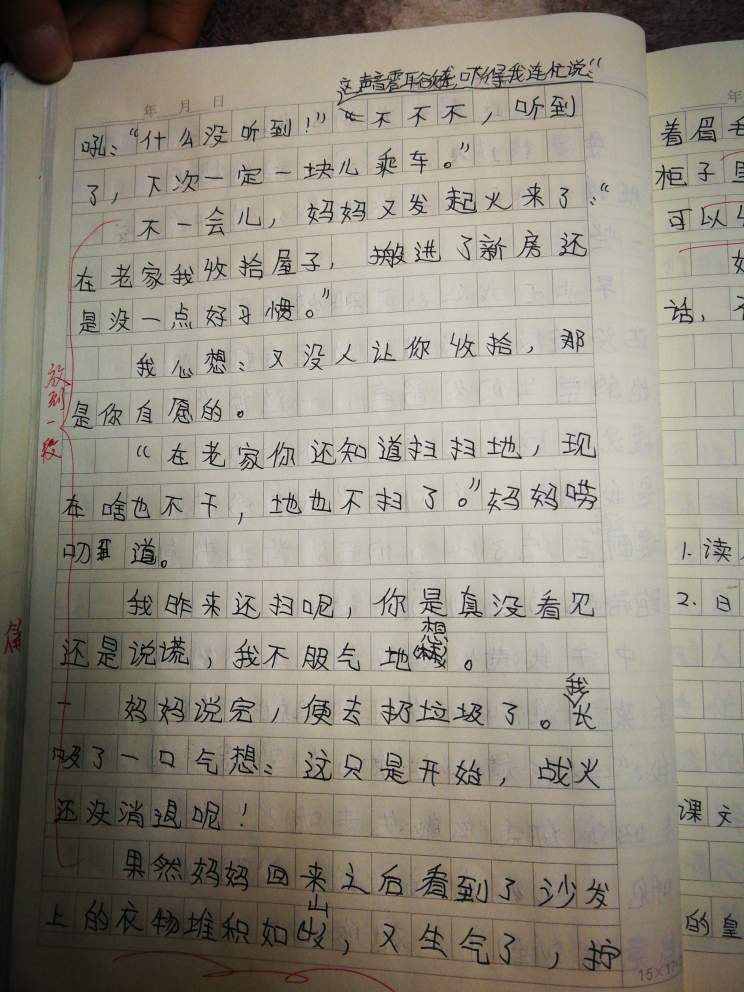 这声音震耳欲聋,吓得我连忙说:“
年 月 日
吼:“什么没听到!”“不不不,听到
了,下次一定一块儿乘车。”
不一会儿,妈妈又发起火来了:“
在老家我收拾屋子,搬进了新房还
是没一点好习惯。”
我心想:又没人让你收拾,那
是你自愿的。
“在老家你还知道扫扫地,现
在啥也不干,地也不扫了。”妈妈唠
叨道。
我昨来还扫呢,你是真没看见
还是说谎,我不服气地想。
妈妈说完,便去扔垃圾了。我长
吸了一口气想:这只是开始,战火
还没消退呢!
果然妈妈回来之后看到了沙发
上的衣物堆积如山,又生气了,拧
放到一段
15×17
年
着眉毛
柜子里
可以
话,
1.读
2.日
课文
的皇